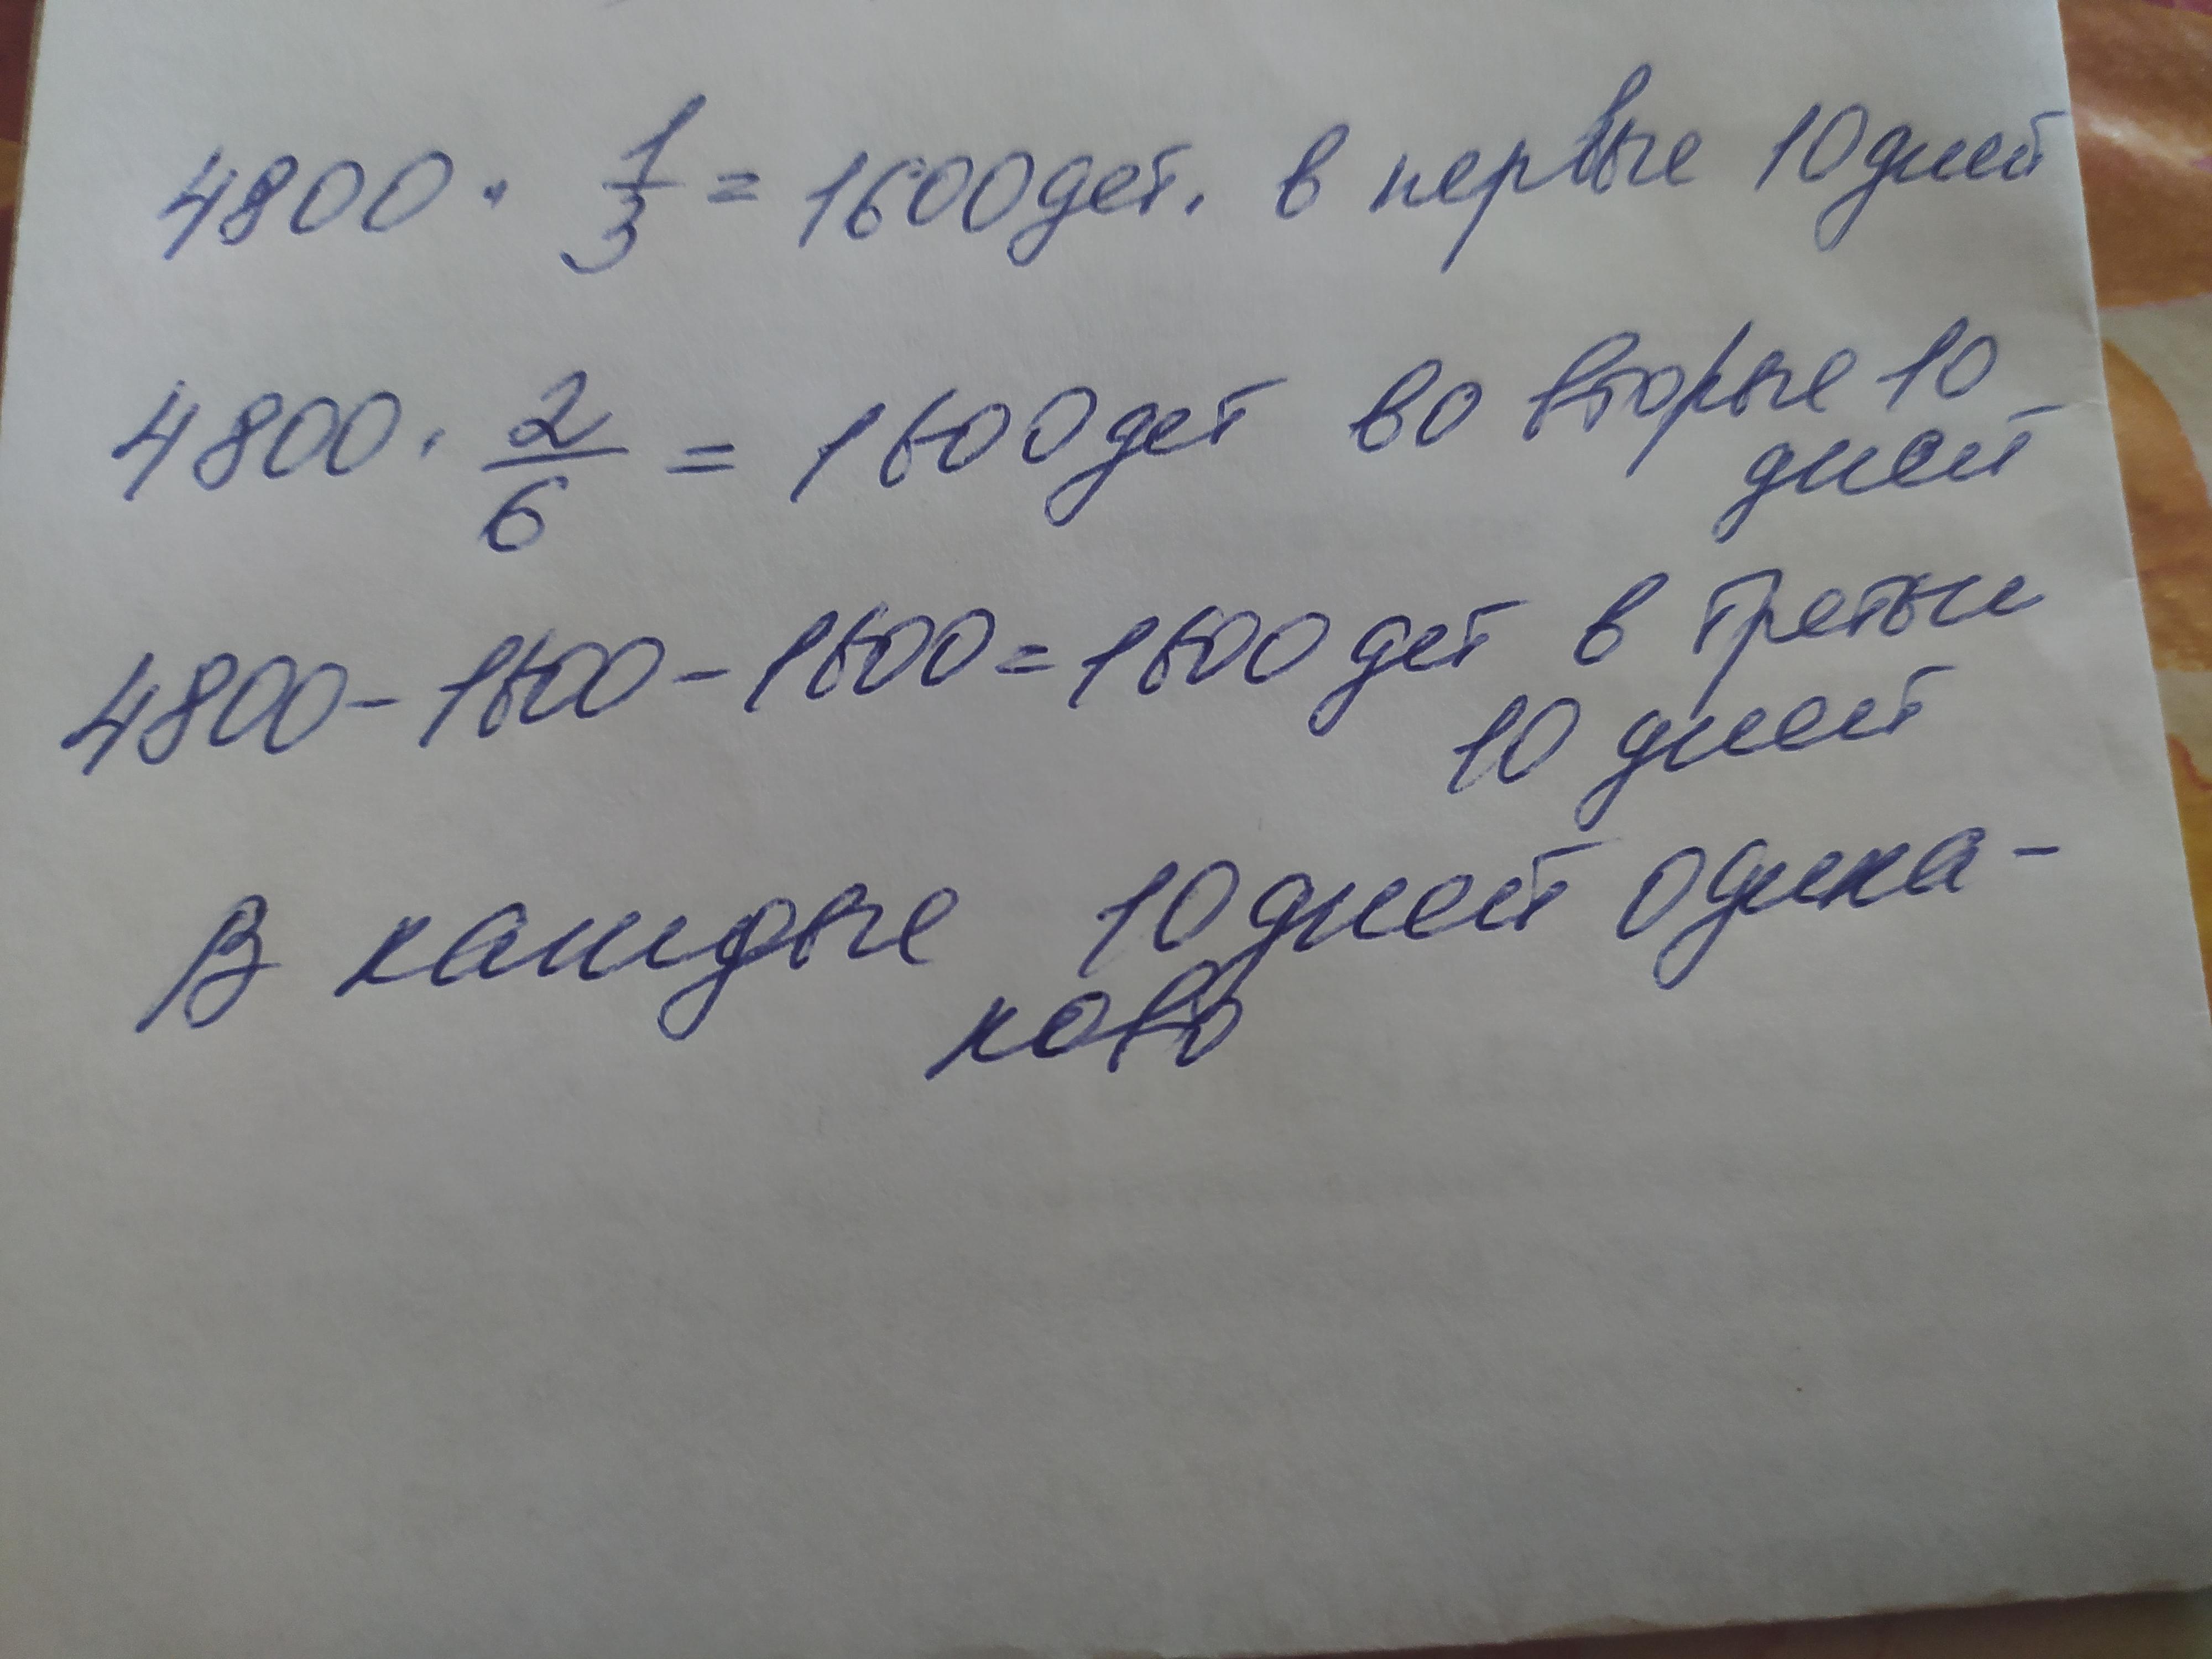 4800 · 1/3 = 1600 дет. в первые 10 дней
4800 · 2/6 = 1600 дет во вторые 10
дней
4800 - 1600 - 1600 = 1600 дет в третьи
10 дней
В каждые 10 дней одина-
ково